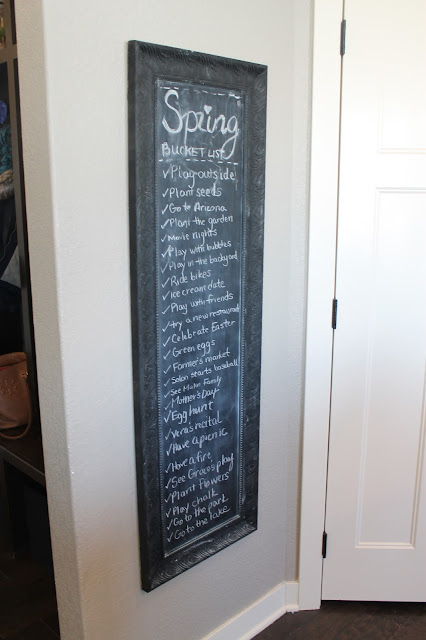 Spring
BUCKET LIST
✓Play outside
✓Plant seeds
✓Go to Arizona
✓Plant the garden
✓Movie nights
✓Play with bubbles
✓Play in the backyard
✓Ride bikes
✓Ice cream date
✓Play with friends
✓try a new restaurant
✓Celebrate Easter
✓Green eggs
✓Farmer's market
✓Solon starts baseball
✓See Family
✓Mother's Day
✓Egg hunt
✓Vera's recital
✓Have a picnic
✓Have a fire
✓See Grace's play
✓Plant Flowers
✓Play chalk
✓Go to the park
✓Go to the lake